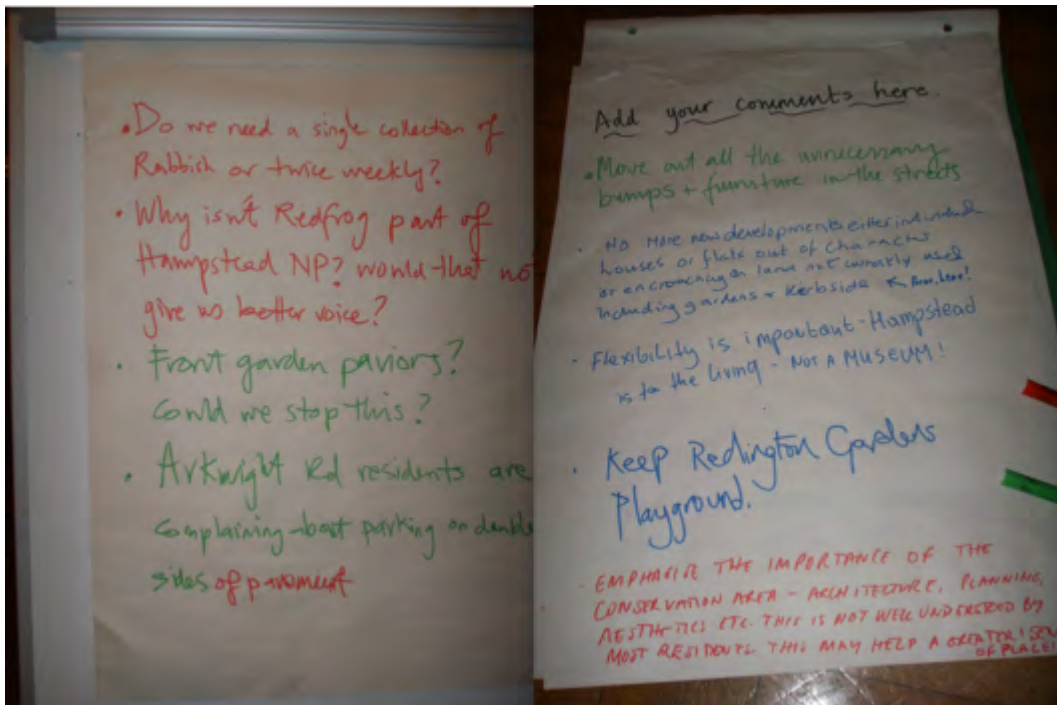 •Do we need a single collection of
Rabbish or twice weekly?
• Why isn't Redfrog part of
Hampstead NP? would that no
give us better voice?
• Front garden paviors?
Could we stop this?
• Arkwright Rd residents are
complaining about parking on double
sides of pavement
Add your comments here.
• Move out all the unnecessary
bumps + furniture in the streets
• No More new developments either individual
houses or flats out of character
or encroaching on land not currently used
including gardens + Kerbside ↖ here!
• Flexibility is important - Hampstead
is for the living - NOT A MUSEUM!
• Keep Redington Gardens
Playground.
- EMPHASISE THE IMPORTANCE OF THE
CONSERVATION AREA - ARCHITECTURE, PLANNING,
AESTHETICS ETC. THIS IS NOT WELL UNDERSTOOD BY
MOST RESIDENTS. THIS MAY HELP A GREATER
OF PLACE!